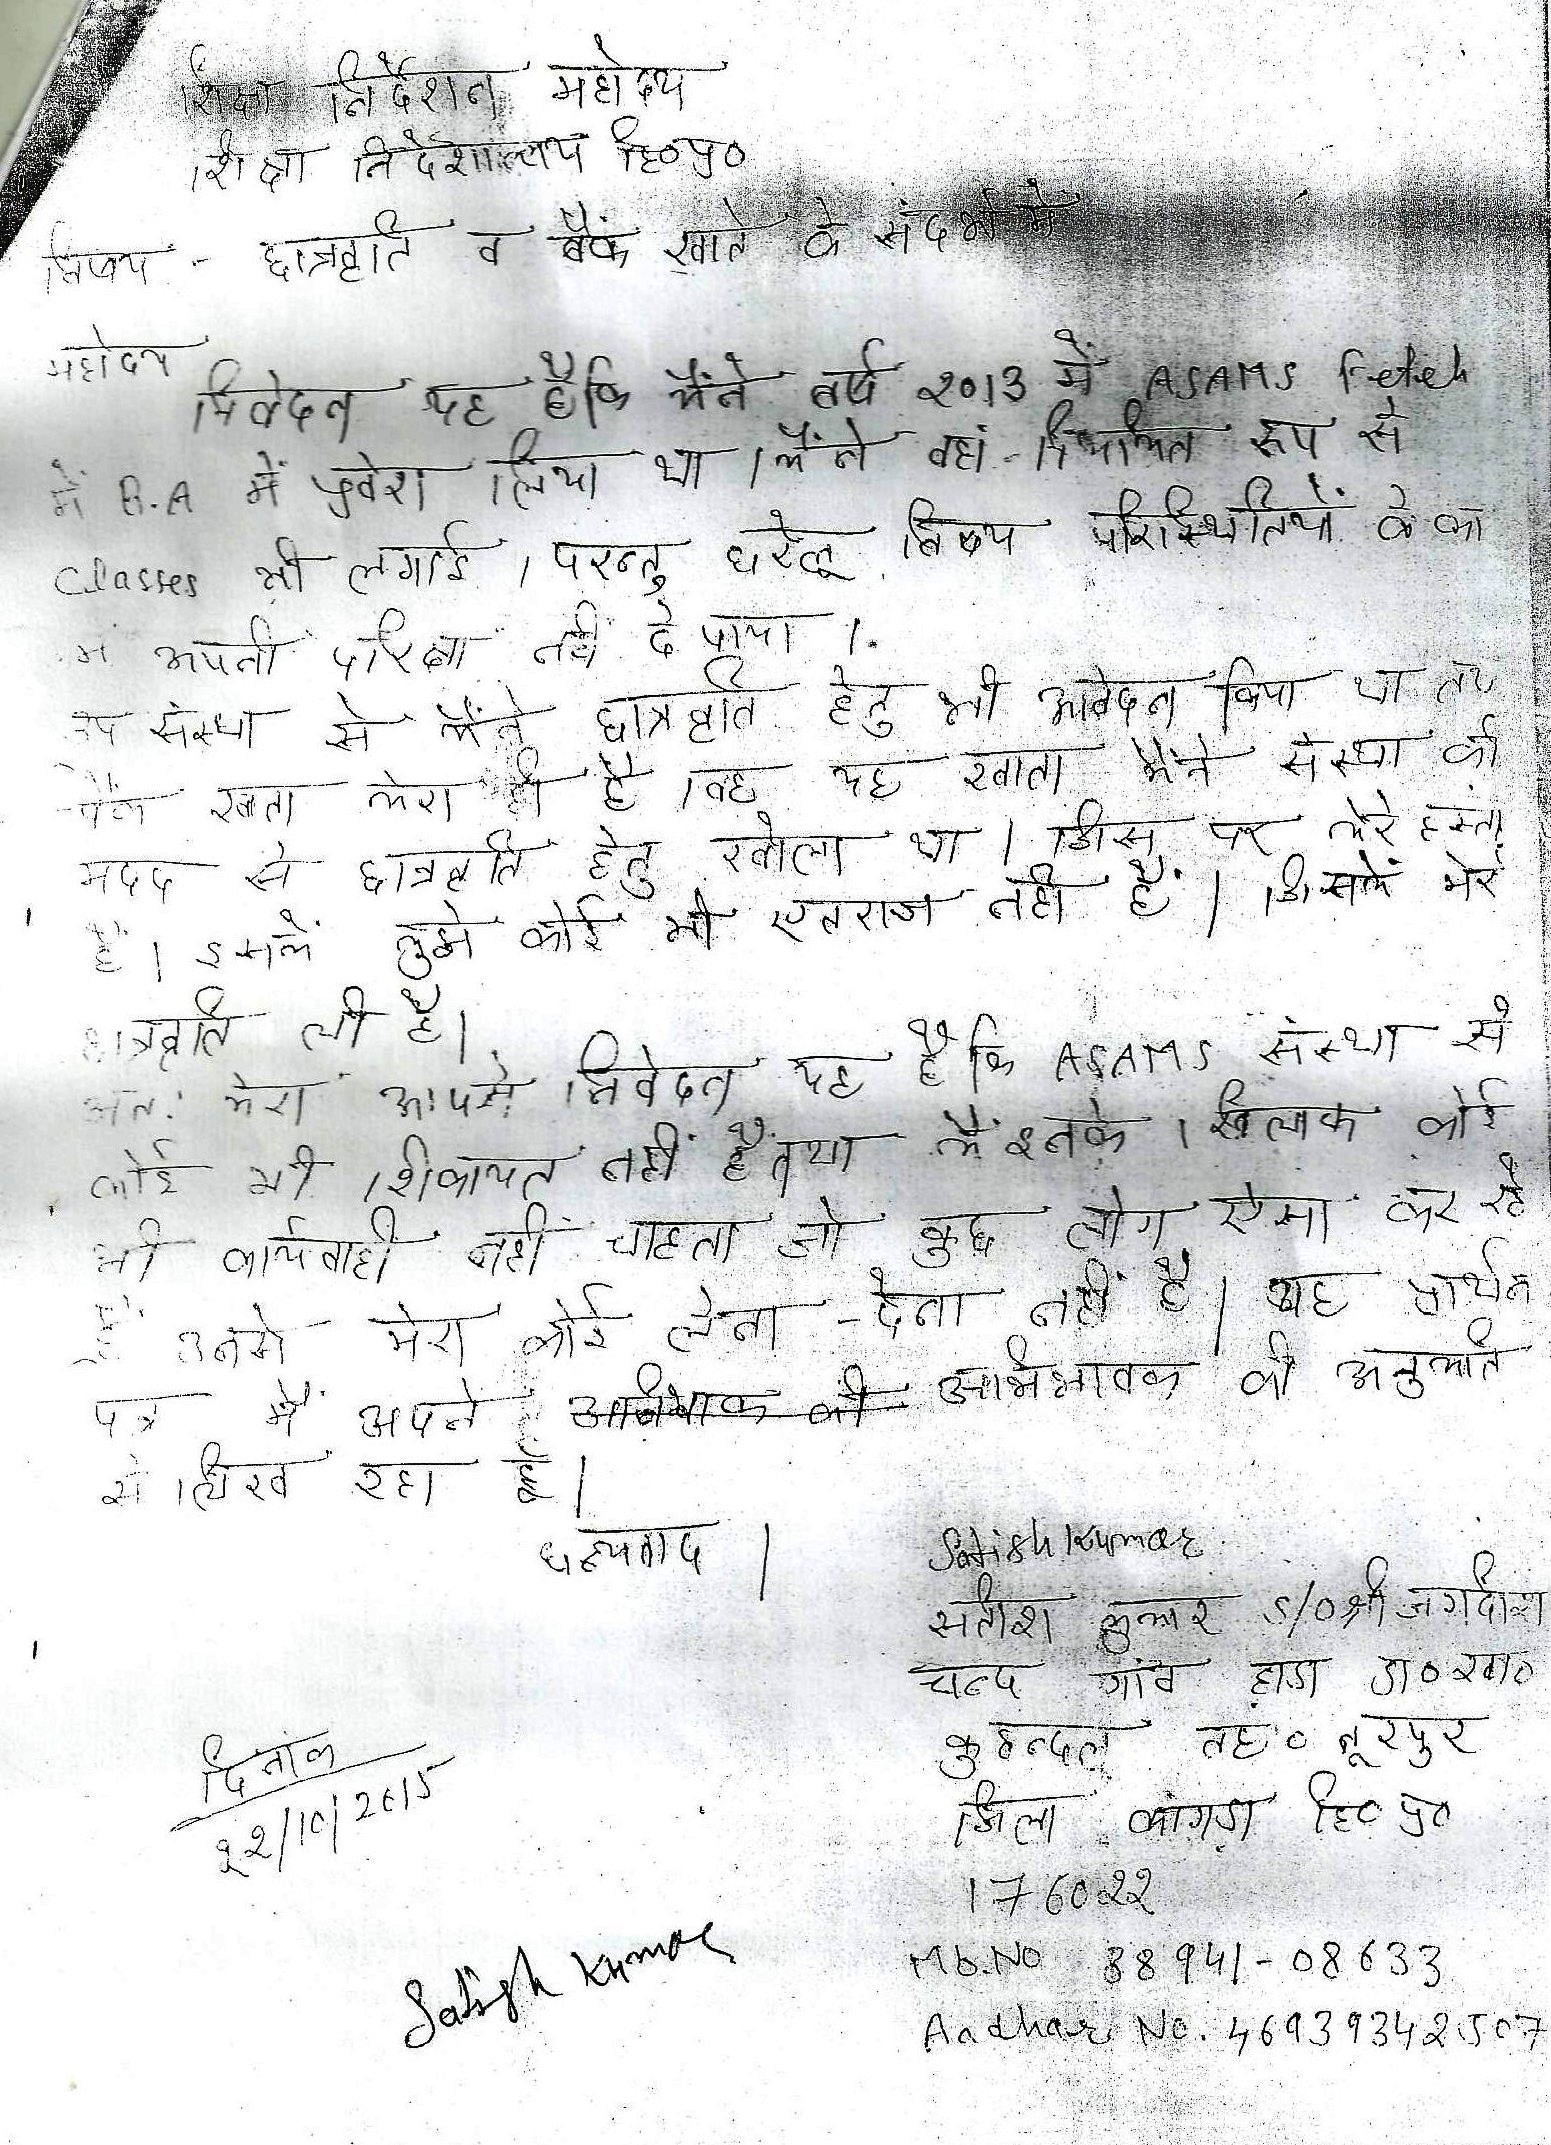 शिक्षा निर्देशन महोदय
शिक्षा निदेशालय हि०प्र०
विषय - छात्रवृति व बैंक खाते के संदर्भ में
महोदय
निवेदन यह है कि मैंने वर्ष 2013 में ASAMS
में B.A में प्रवेश लिया था । मैंने वहां नियमित रूप से
Classes भी लगाई । परन्तु घरेलू विषय परिस्थितियों के का
मैं अपनी परिक्षा नहीं दे पाया ।
संस्था से मैंने छात्रवृति हेतु भी आवेदन किया था तथ
बैंक खाता मेरा ही है । वह यह खाता मैंने संस्था की
मदद से छात्रवृति हेतु खोला था । जिस पर मेरे हस्ता
हैं । इसमें मुझे कोई भी एतराज नहीं है । जिसमें मेरे
छात्रवृति ली है ।
अतः मेरा आपसे निवेदन यह है कि ASAMS संस्था से
कोई भी शिकायत नहीं है तथा मैं इनके खिलाफ कोई
भी कार्यवाही नहीं चाहता जो कुछ लोग ऐसा कर रहे
हैं उनसे मेरा कोई लेना - देना नहीं है । यह प्रार्थन
पत्र मैं अपने अभिभावक की अनुमति
से लिख रहा हूँ ।
धन्यवाद ।
Satish Kumar
सतीश कुमार S/O श्री जगदीश
चन्द गांव हाडा डा०खा०
तह० नूरपुर
जिला कांगडा हि० प्र०
176022
दिनांक
22/10/2015
Satish Kumar
Mb.No 88941-08633
Aadhar No. 46939342507